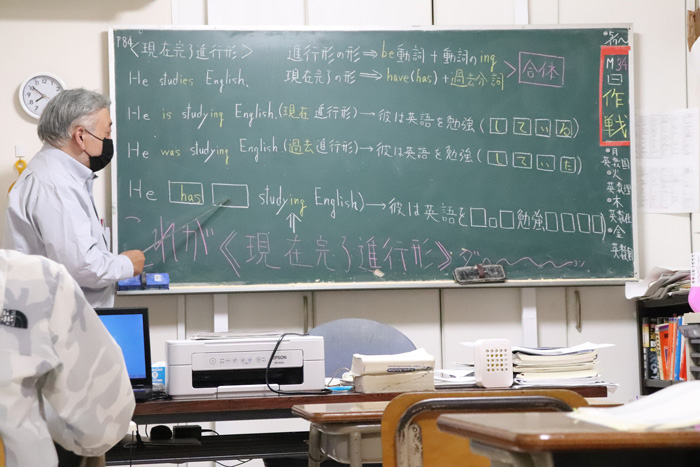 P84
〈現在完了進行形〉 進行形の形⇒be動詞+動詞のing
He studies English. 現在完了の形⇒have(has)+過去分詞 > 合体
He is studying English.(現在進行形)→彼は英語を勉強(している)
He was studying English(過去進行形)→彼は英語を勉強(していた)
He has □ studying English)→彼は英語を□□□勉強□□□□)
これが《現在完了進行形》ダ〜
M34
日
作
戦
月
英数国
火
英数理
木
英数社
金
英数国
EPSON